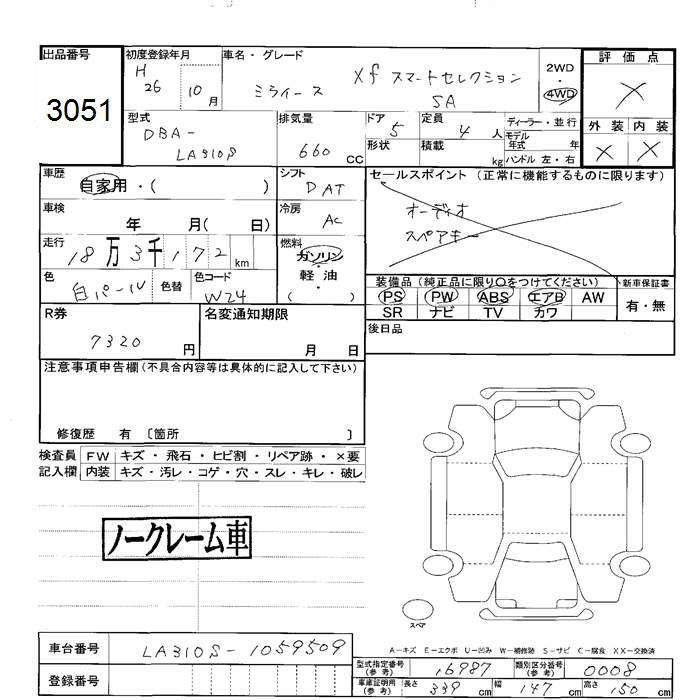 出品番号
3051
初度登録年月
H 26 10月
車名・グレード
ミライース Xf スマートセレクション SA
2WD・4WD
評価点
X
外装 内装
X X
型式
DBA-LA310S
排気量
660 CC
ドア 5
形状
定員 4人
積載 kg
ディーラー・並行
モデル年式 年
ハンドル 左・右
車歴
自家用・( )
シフト
DAT
セールスポイント (正常に機能するものに限ります)
オーディオ
スペアキー
車検
年 月( 日)
冷房
AC
走行
18万3千172km
燃料
ガソリン・軽油
( )
色
白パール
色替
色コード
W24
装備品(純正品に限り○をつけてください)
PS PW ABS エアB AW
SR ナビ TV カワ
新車保証書
有・無
R券
7320円
名変通知期限
月 日
後日品
注意事項申告欄(不具合内容等は具体的に記入して下さい)
修復歴 有 〔箇所 〕
検査員記入欄
FW キズ・飛石・ヒビ割・リペア跡・×要
内装 キズ・汚レ・コゲ・穴・スレ・キレ・破レ
ノークレーム車
スペア
A-キズ E-エクボ U-凹み W-補修跡 S-サビ C-腐食 XX-交換済
車台番号 LA310S-1059509
登録番号
型式指定番号(参考) 16987
類別区分番号(参考) 0008
車庫証明用(参考) 長さ 339cm 幅 147cm 高さ 150cm